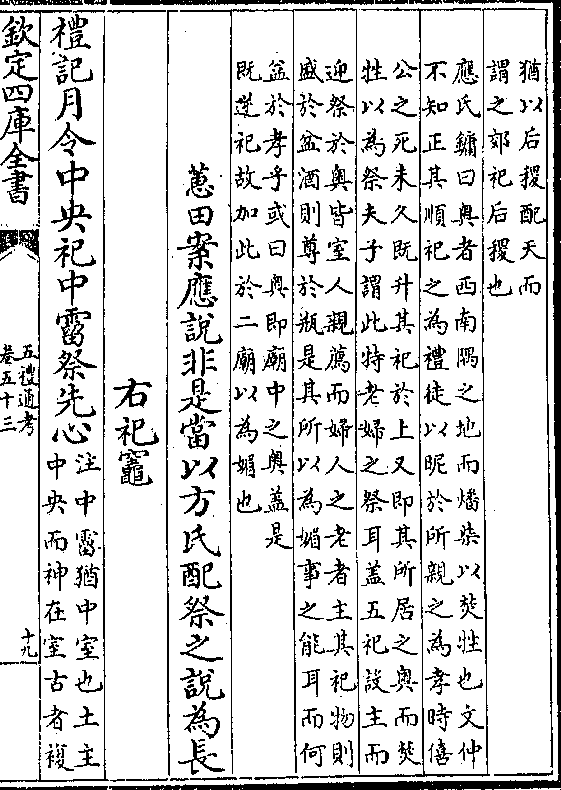 猶以后稷配天而
謂之郊祀后稷也
應氏鏞曰奧者西南隅之地而燔柴以焚牲也文仲
不知正其順祀之為禮徒以昵於所親之為孝時僖
公之死未久既升其祀於上又即其所居之奧而焚
牲以為祭夫子謂此特老婦之祭耳蓋五祀設主而
迎祭於奧皆室人親薦而婦人之老者主其祀物則
盛於盆酒則尊於瓶是其所以為媚事之能耳而何
益於孝乎或曰奧即廟中之奧蓋是
既逆祀故加此於二廟以為媚也
蕙田案應說非是當以方氏配祭之說為長
右祀竈
禮記月令中央祀中霤祭先心
注中霤猶中室也土主
中央而神在室古者複
欽定四庫全書
五禮通考
卷五十三
十九